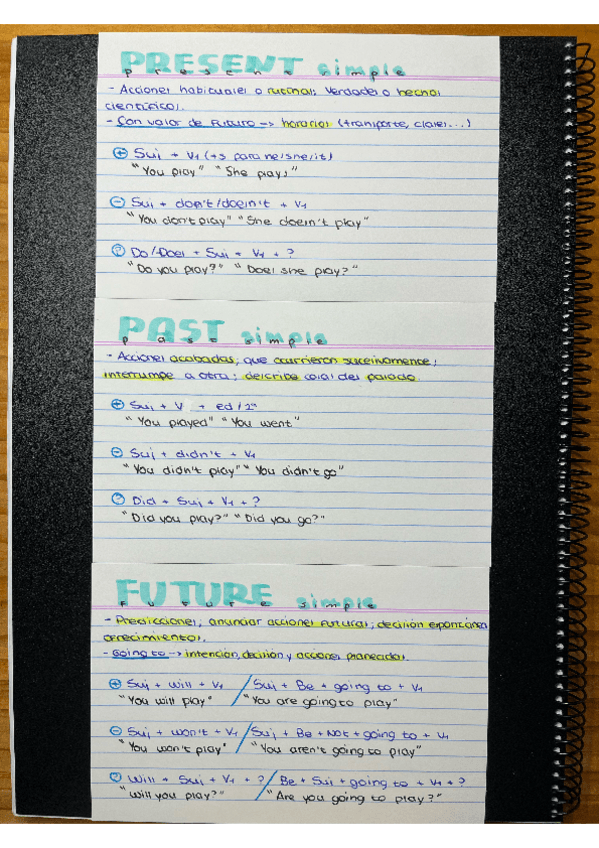 PRESENT simple
present simple
- Acciones habituales o rutinas; verdades o hechos
científicos.
- Con valor de futuro -> horarios (transporte, clases...)
+ Suj + V1 (+s para he/she/it)
"You play" "She plays"
- Suj + don't/doesn't + V1
"You don't play" "She doesn't play"
? Do/Does + Suj + V1 + ?
"Do you play?" "Does she play?"
PAST simple
past simple
- Acciones acabadas; que ocurrieron sucesivamente;
interrumpe a otra; describe cosas des pasado.
+ Suj + V + ed / 2ª
"You played" "You went"
- Suj + didn't + V1
"You didn't play" "You didn't go"
? Did + Suj + V1 + ?
"Did you play?" "Did you go?"
FUTURE simple
future simple
- Predicciones, anunciar acciones futuras, decisión espontánea
ofrecimientos.
- Going to -> intención, decisión y acciones planeadas.
+ Suj + will + V1 / Suj + Be + going to + V1
"You will play" "You are going to play"
- Suj + won't + V1 / Suj + Be + Not + going to + V1
"You won't play" "You aren't going to play"
? Will + Suj + V1 + ? / Be + Suj + going to + V1 + ?
"Will you play?" "Are you going to play?"